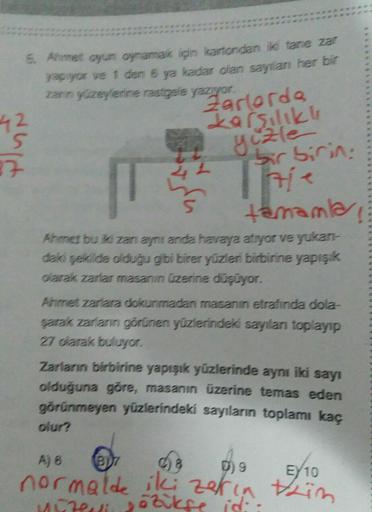 5. Ahmet oyun oynamak için kartondan iki tane zar
yapıyor ve 1 den 6 ya kadar olan sayıları her bir
zarın yüzeylerine rastgele yazıyor.
zarlarda
karşılıklı
yüzle
bir birini
7'ye
tamamlar!
42
5
37
4 1
5
Ahmet bu iki zarı aynı anda havaya atıyor ve yukarı-
daki şekilde olduğu gibi birer yüzleri birbirine yapışık
olarak zarlar masanın üzerine düşüyor.
Ahmet zarlara dokunmadan masanın etrafında dola-
şarak zarların görünen yüzlerindeki sayıları toplayıp
27 olarak buluyor.
Zarların birbirine yapışık yüzlerinde aynı iki sayı
olduğuna göre, masanın üzerine temas eden
görünmeyen yüzlerindeki sayıların toplamı kaç
olur?
A) 6 B) 7 C) 8 D) 9 E) 10
normalde iki zarın tüm
gözükse idi